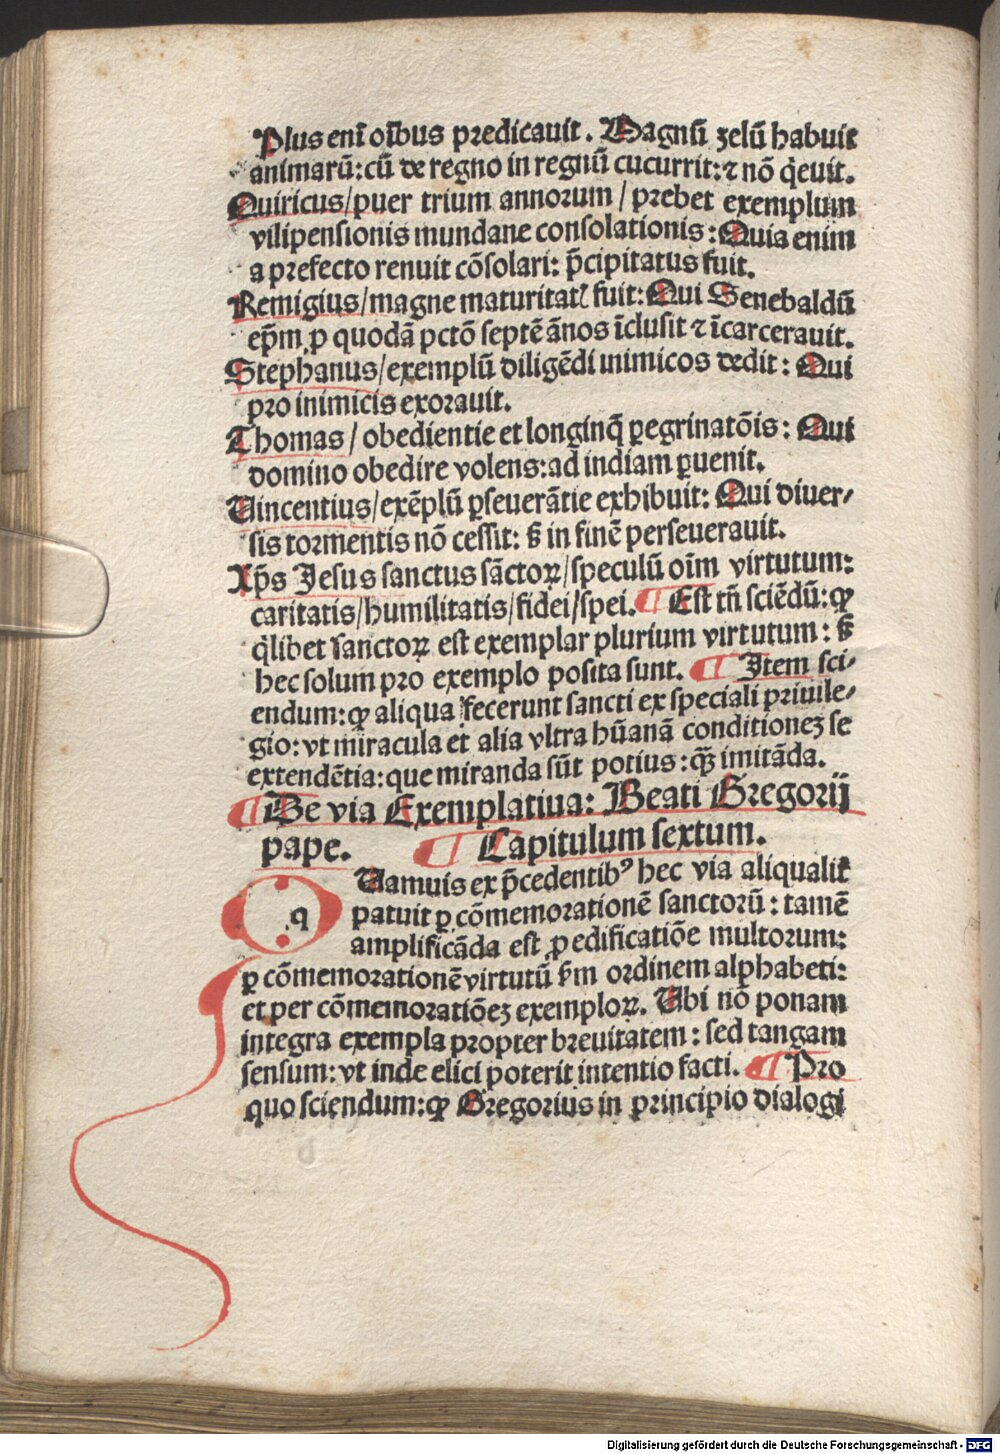 Plus eni̅ oi̅bus predicauit. Magnu̅ zelu̅ habuit
animaru̅: cu̅ de regno in regnu̅ cucurrit: ⁊ no̅ q̇euit.
Quiricus/puer trium annorum / prebet exemplum
vilipensionis mundane consolationis: Quia enim
a prefecto renuit co̅solari: p̅cipitatus fuit.
Remigius/magne maturitatꝭ fuit: Qui Senebaldu̅
ep̅m ꝓ quoda̅ pcto̅ septe̅ a̅nos i̅clusit ⁊ i̅carcerauit.
Stephanus/exemplu̅ dilige̅di inimicos dedit: Qui
pro inimicis exorauit.
Thomas / obedientie et longinq̅ ꝑegrinato̅is: Qui
domino obedire volens: ad indiam ꝑuenit.
Vincentius/exe̅plu̅ ꝑseuera̅tie exhibuit: Qui diuer-
sis tormentis no̅ cessit: s̅ in fine̅ perseuerauit.
Xp̅s Jesus sanctus sa̅ctoꝝ/speculu̅ oi̅m virtutum:
caritatis/humilitatis/fidei/spei. ¶ Est tn̅ scie̅du̅: ꝙ
q̇libet sanctoꝝ est exemplar plurium virtutum: s̅
hec solum pro exemplo posita sunt. ¶ Item sci-
endum: ꝙ aliqua fecerunt sancti ex speciali priuile-
gio: vt miracula et alia vltra hu̅ana̅ conditionez se
extende̅tia: que miranda su̅t potius: q̅ꝫ imita̅da.
¶ De via Exemplatiua: Beati Gregorij
pape. ¶ Capitulum sextum.
Q q Uamuis ex p̅cedentibꝰ hec via aliqualit̅
patuit ꝑ co̅memoratione̅ sanctoru̅: tame̅
amplifica̅da est ꝓ edificatio̅e multorum:
ꝑ co̅memoratione̅ virtutu̅ s̅m ordinem alphabeti:
et per co̅memoratio̅ez exemploꝝ. Ubi no̅ ponam
integra exempla propter breuitatem: sed tangam
sensum: vt inde elici poterit intentio facti. ¶ Pro
quo sciendum: ꝙ Gregorius in principio dialogi
Digitalisierung gefördert durch die Deutsche Forschungsgemeinschaft - DFG